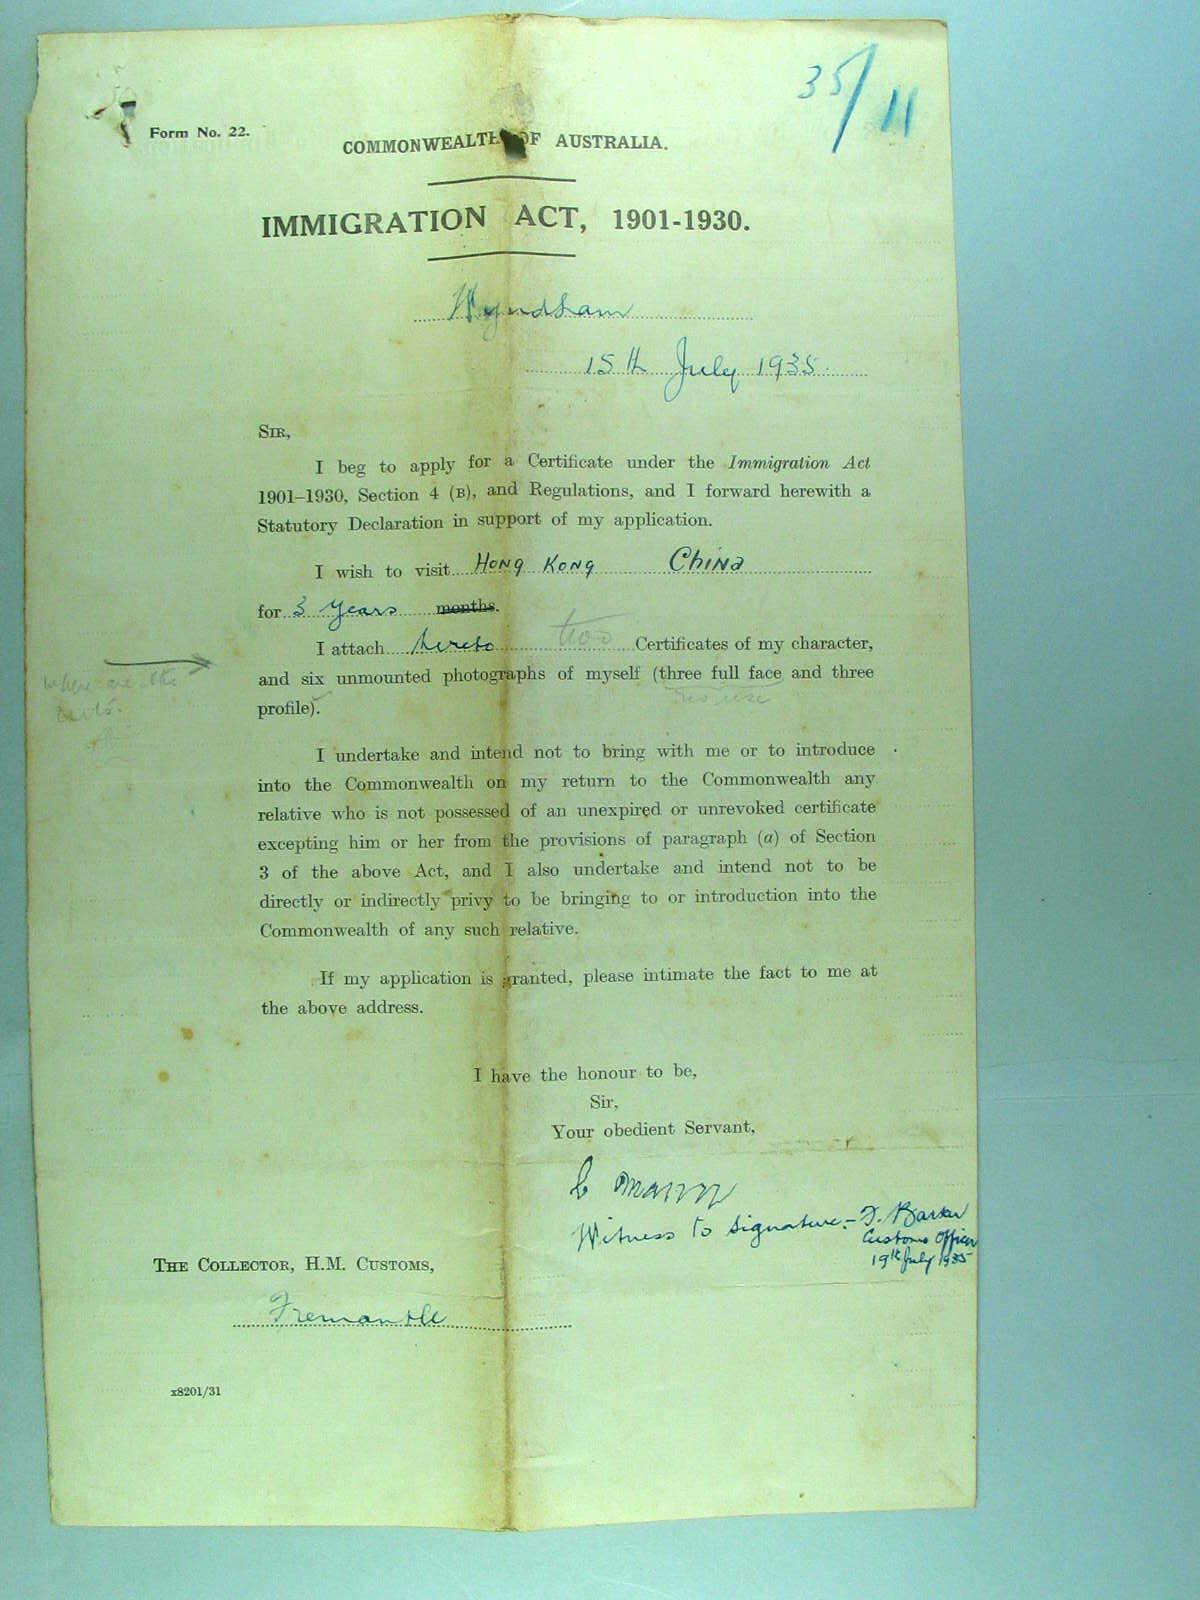 35/11
Form No. 22.
COMMONWEALTH OF AUSTRALIA.
IMMIGRATION ACT, 1901-1930.
Wyndham
15th July 1935.
SIR,
I beg to apply for a Certificate under the Immigration Act
1901-1930, Section 4 (B), and Regulations, and I forward herewith a
Statutory Declaration in support of my application.
I wish to visit Hong Kong China
for 3 years months.
I attach hereto two Certificates of my character,
and six unmounted photographs of myself (three full face and three
profile).
where are the
I undertake and intend not to bring with me or to introduce
into the Commonwealth on my return to the Commonwealth any
relative who is not possessed of an unexpired or unrevoked certificate
excepting him or her from the provisions of paragraph (a) of Section
3 of the above Act, and I also undertake and intend not to be
directly or indirectly privy to be bringing to or introduction into the
Commonwealth of any such relative.
If my application is granted, please intimate the fact to me at
the above address.
I have the honour to be,
Sir,
Your obedient Servant,
Witness to Signature:- F. Barker
Customs Officer
19th July 1935
THE COLLECTOR, H.M. CUSTOMS,
Fremantle
x8201/31